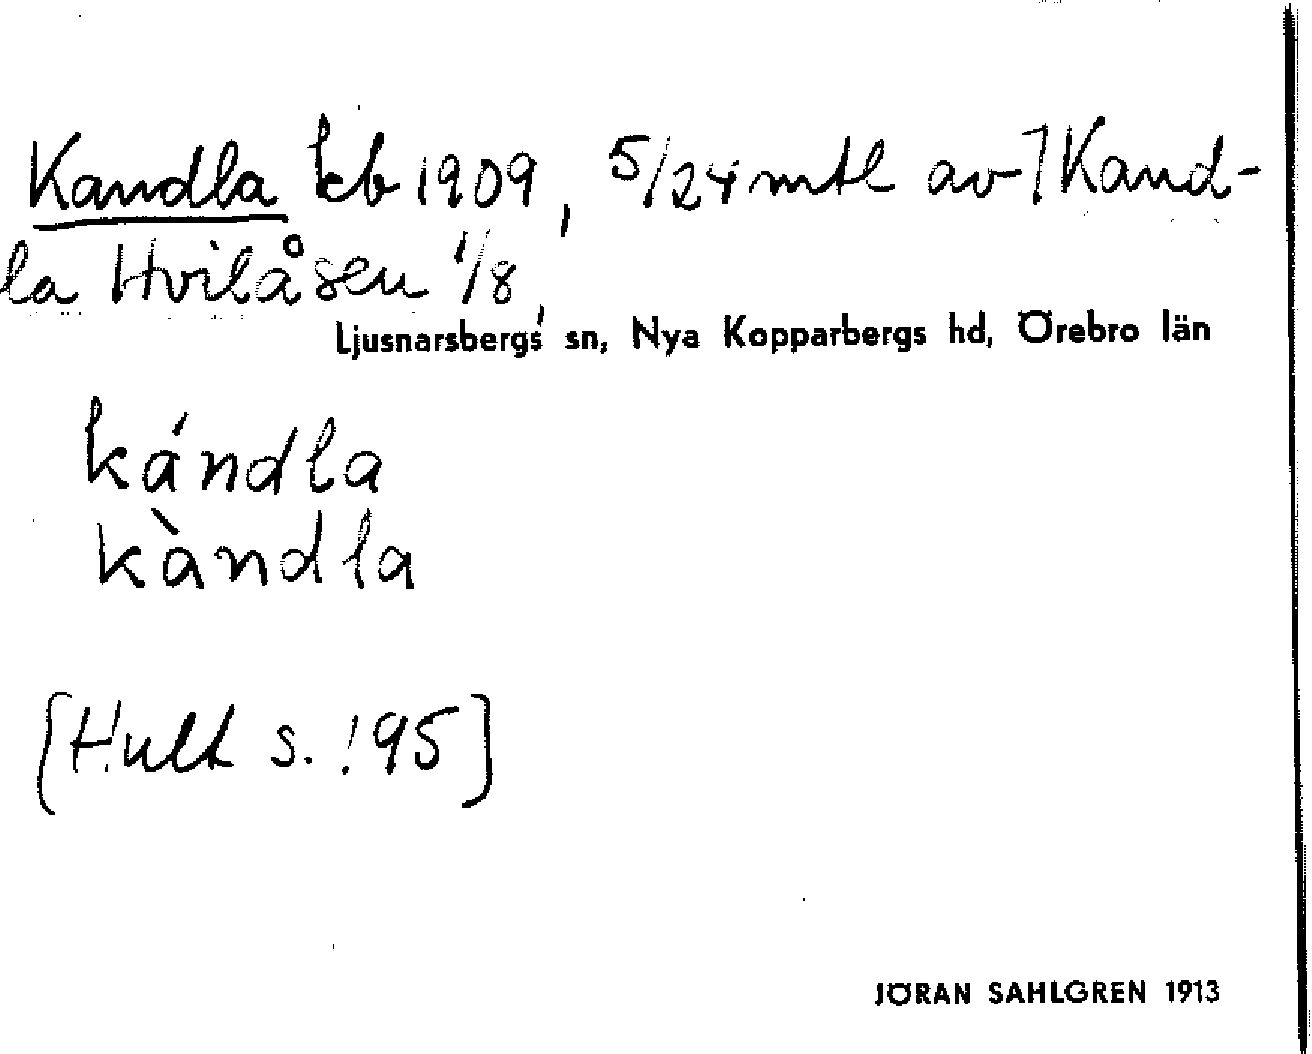 Kandla kb 1909, 5/24 mtl av 7 Kand-
la Hvilåsen 1/8,
Ljusnarsbergs sn, Nya Kopparbergs hd, Örebro län
kándla
kàndla
[Hult s. 195]
JÖRAN SAHLGREN 1913